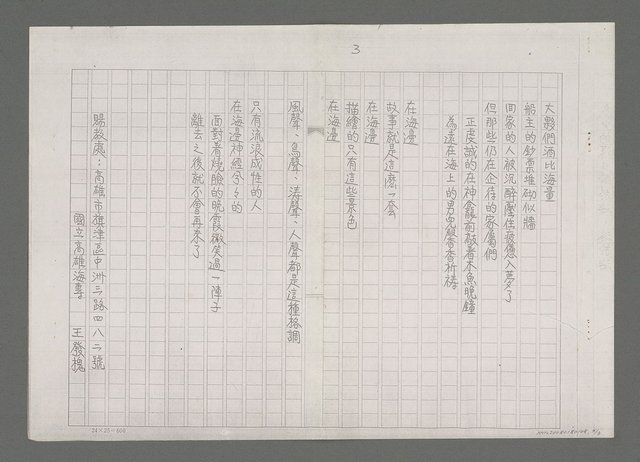 3
大夥們酒比海量
船主的鈔票堆砌似牆
回家的人被沉醉壓住疲憊入夢了
但那些仍在企待的家屬們
正虔誠的在神龕前敲著木魚晚鐘
為遠在海上的男人繫香祈禱
在海邊
故事就是這麼一套
在海邊
描繪的只有這些景色
在海邊
風聲、鳥聲、濤聲、人聲都是這種格調
只有流浪成性的人
在海邊神經兮兮的
面對著燒臉的晚霞微笑過一陣子
離去之後就不會再來了
賜教處：高雄市旗津區中洲三路四八二號
國立高雄海專
王發槐
24×25=600